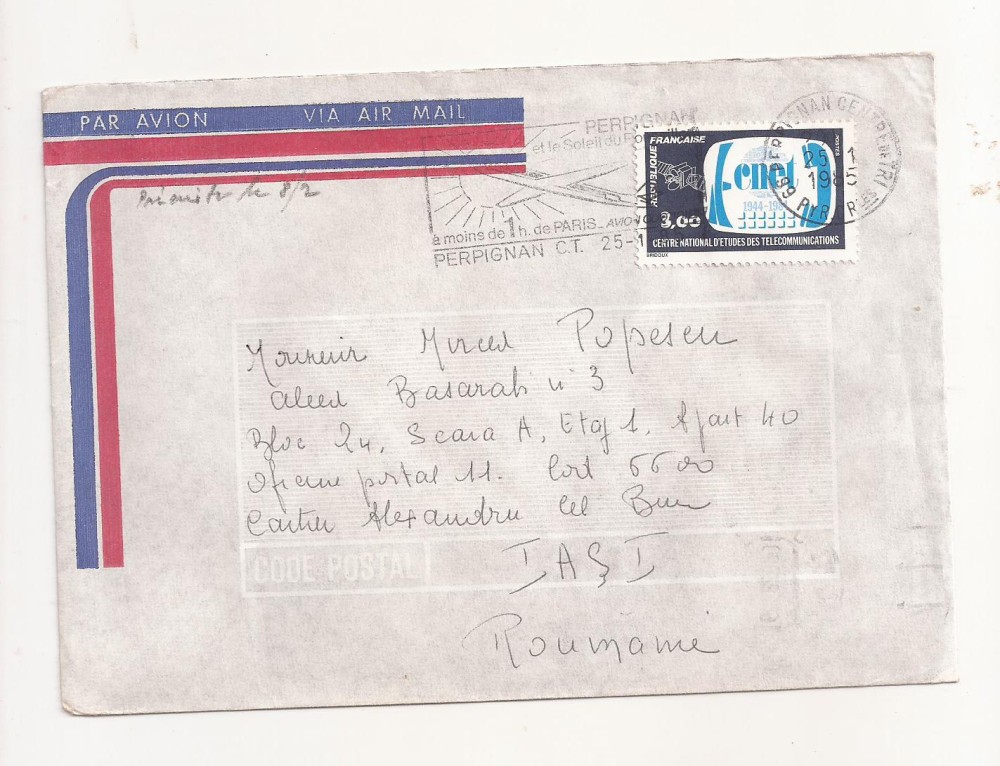 PAR AVION VIA AIR MAIL
PERPIGNAN
et le Soleil du
à moins de 1 h. de PARIS_AVION
PERPIGNAN C.T. 25-1
REPUBLIQUE FRANÇAISE
POSTES
cnet
1944-198
3,00
CENTRE NATIONAL D'ETUDES DES TELECOMMUNICATIONS
BRIDOUX
PERPIGNAN CENTRE
25 1
1985
PYR. OR.
le 8/2
Monsieur Mircea Popescu
Aleea Basarabi n° 3
Bloc 24, Scara A, Etaj 1, Apart 40
Oficiu postal 11. Cod 6600
Cartier Alexandru cel Bun
CODE POSTAL
IAȘI
Roumanie